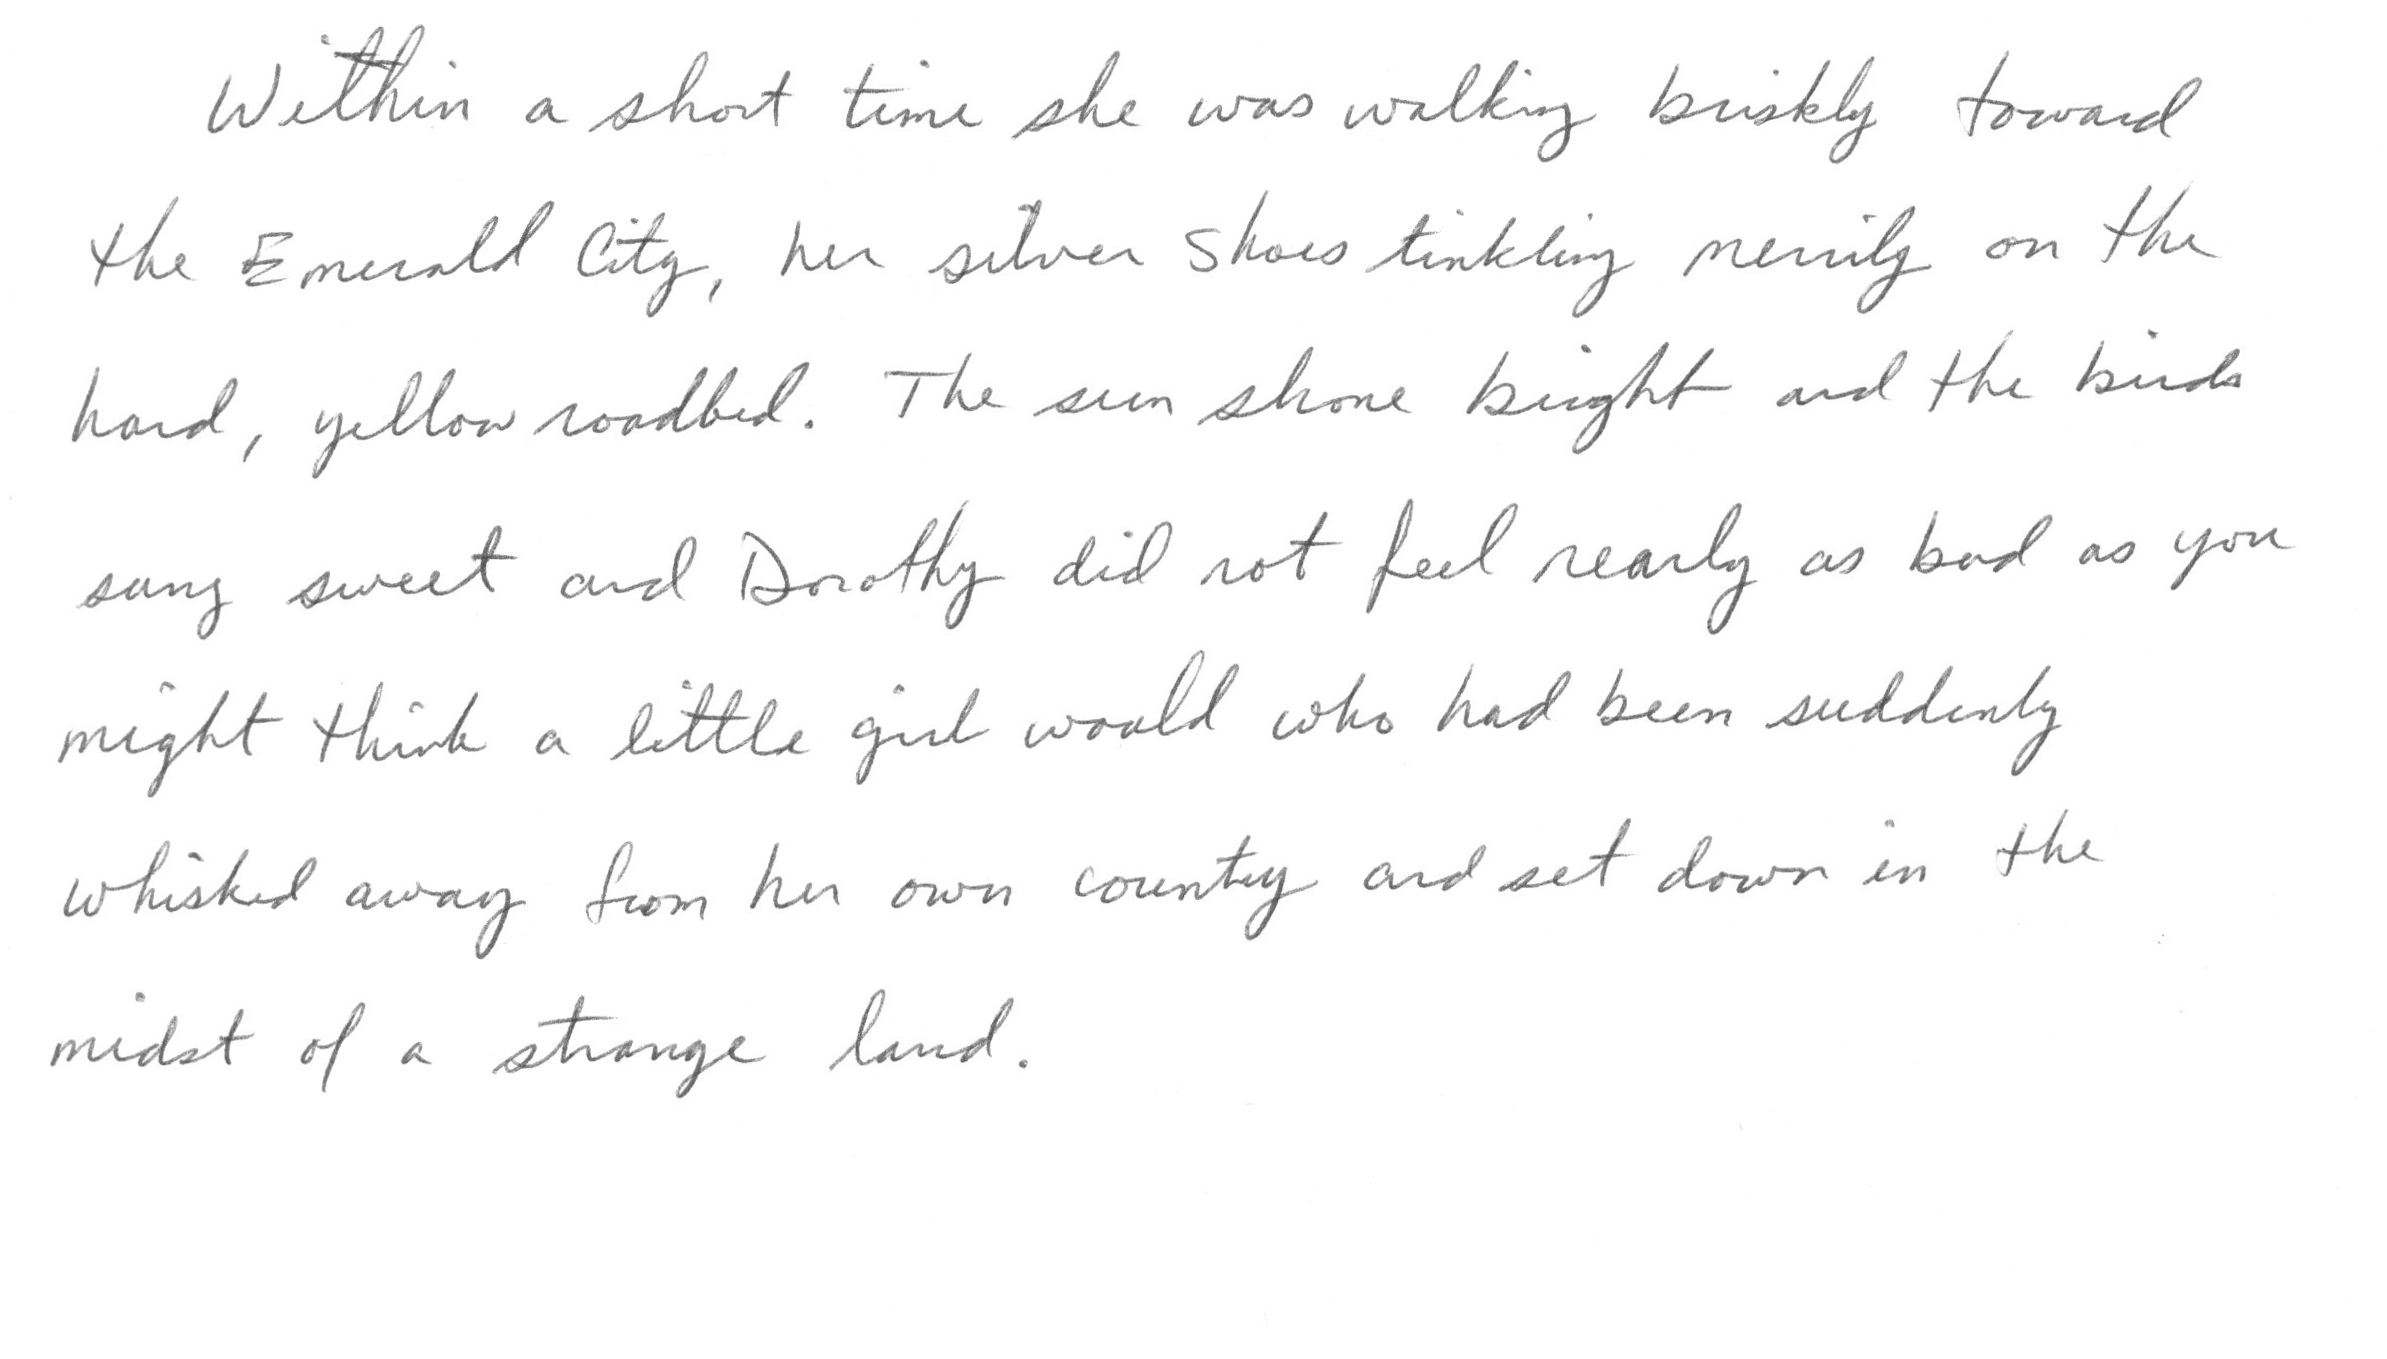 Within a short time she was walking briskly toward
the Emerald City, her silver Shoes tinkling merrily on the
hard, yellow roadbed. The sun shone bright and the birds
sang sweet and Dorothy did not feel nearly as bad as you
might think a little girl would who had been suddenly
whisked away from her own country and set down in the
midst of a strange land.